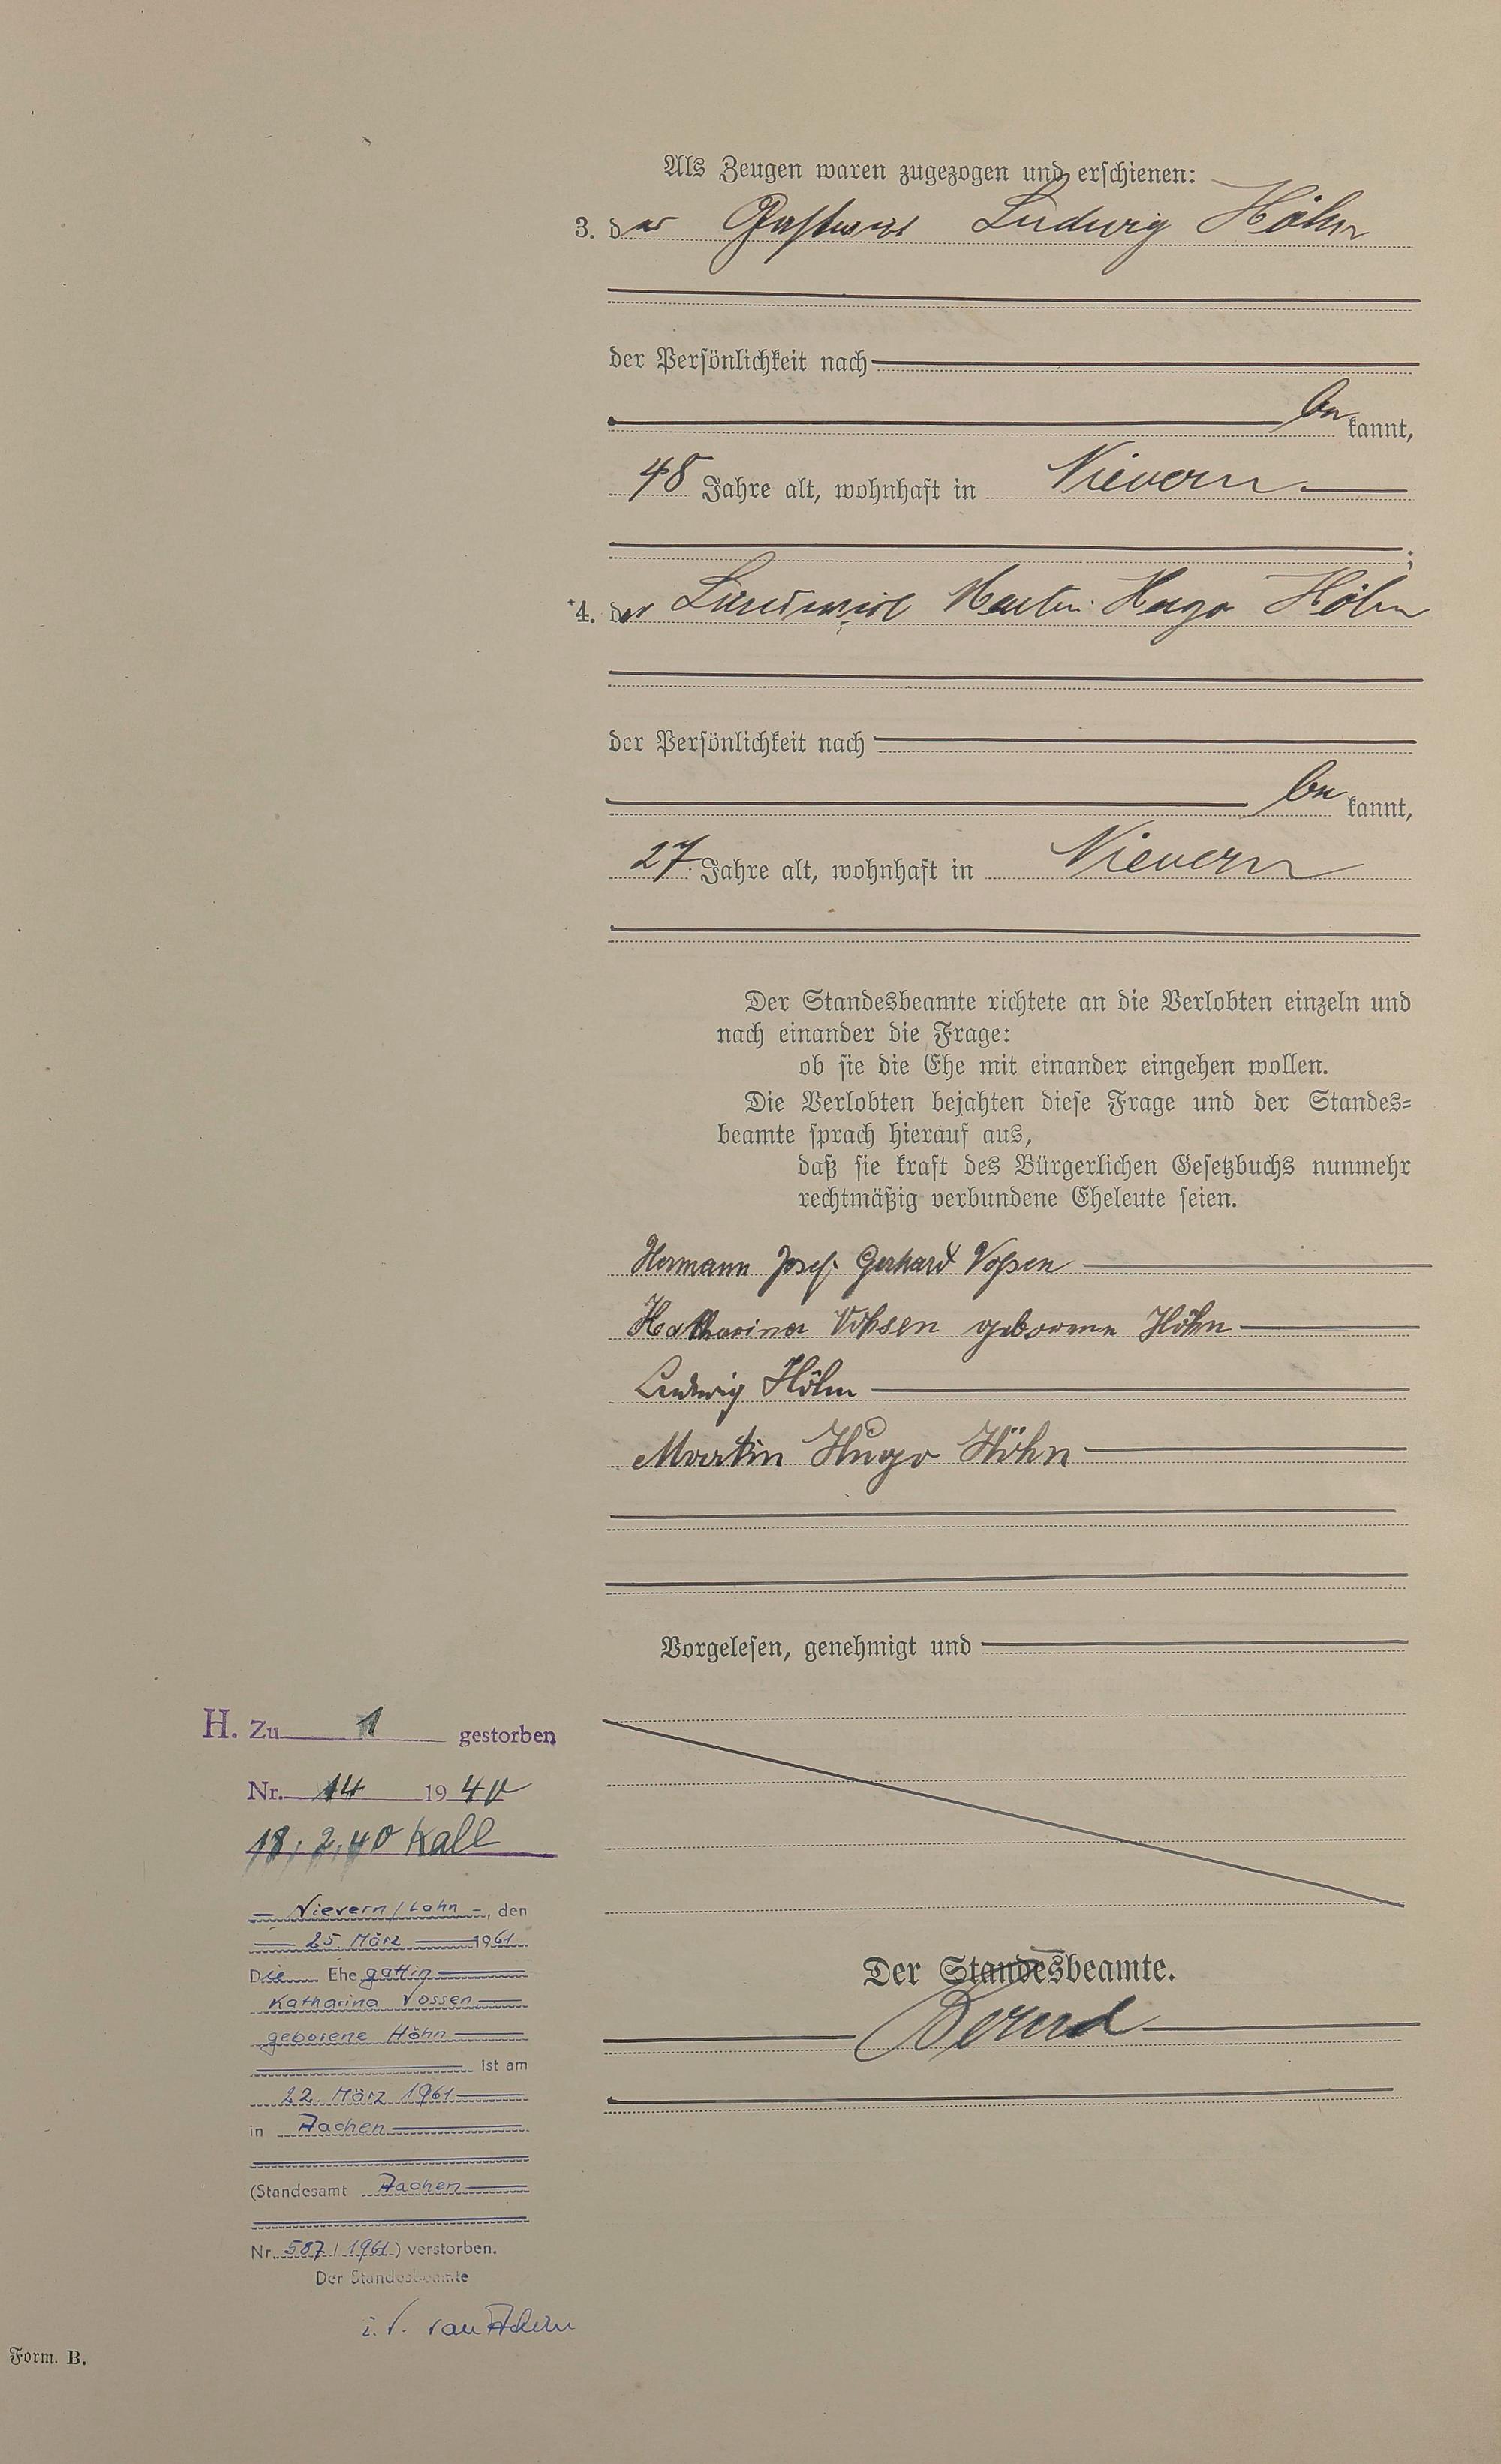 Als Zeugen waren zugezogen und erschienen:
3. der Gastwirt Ludwig Höhn
der Persönlichkeit nach
be kannt,
48 Jahre alt, wohnhaft in Nievern
;
*4. der Landwirt Martin Hugo Höhn
der Persönlichkeit nach
be kannt,
27 Jahre alt, wohnhaft in Nievern
Der Standesbeamte richtete an die Verlobten einzeln und
nach einander die Frage:
ob sie die Ehe mit einander eingehen wollen.
Die Verlobten bejahten diese Frage und der Standes=
beamte sprach hierauf aus,
daß sie kraft des Bürgerlichen Gesetzbuchs nunmehr
rechtmäßig verbundene Eheleute seien.
Hermann Josef Gerhard Voßen
Katharina Vohsen geborene Höhn
Ludwig Höhn
Martin Hugo Höhn
Vorgelesen, genehmigt und
Der Standesbeamte.
Bernd
H. Zu 1 gestorben
Nr. 14 1940
18.2.40 Kall
Nievern/Lahn, den
25. März 1961
Die Ehegattin
Katharina Vossen
geborene Höhn
ist am
22. März 1961
in Aachen
(Standesamt Aachen
Nr. 587/1961) verstorben.
Der Standesbeamte
i.V.
Form. B.